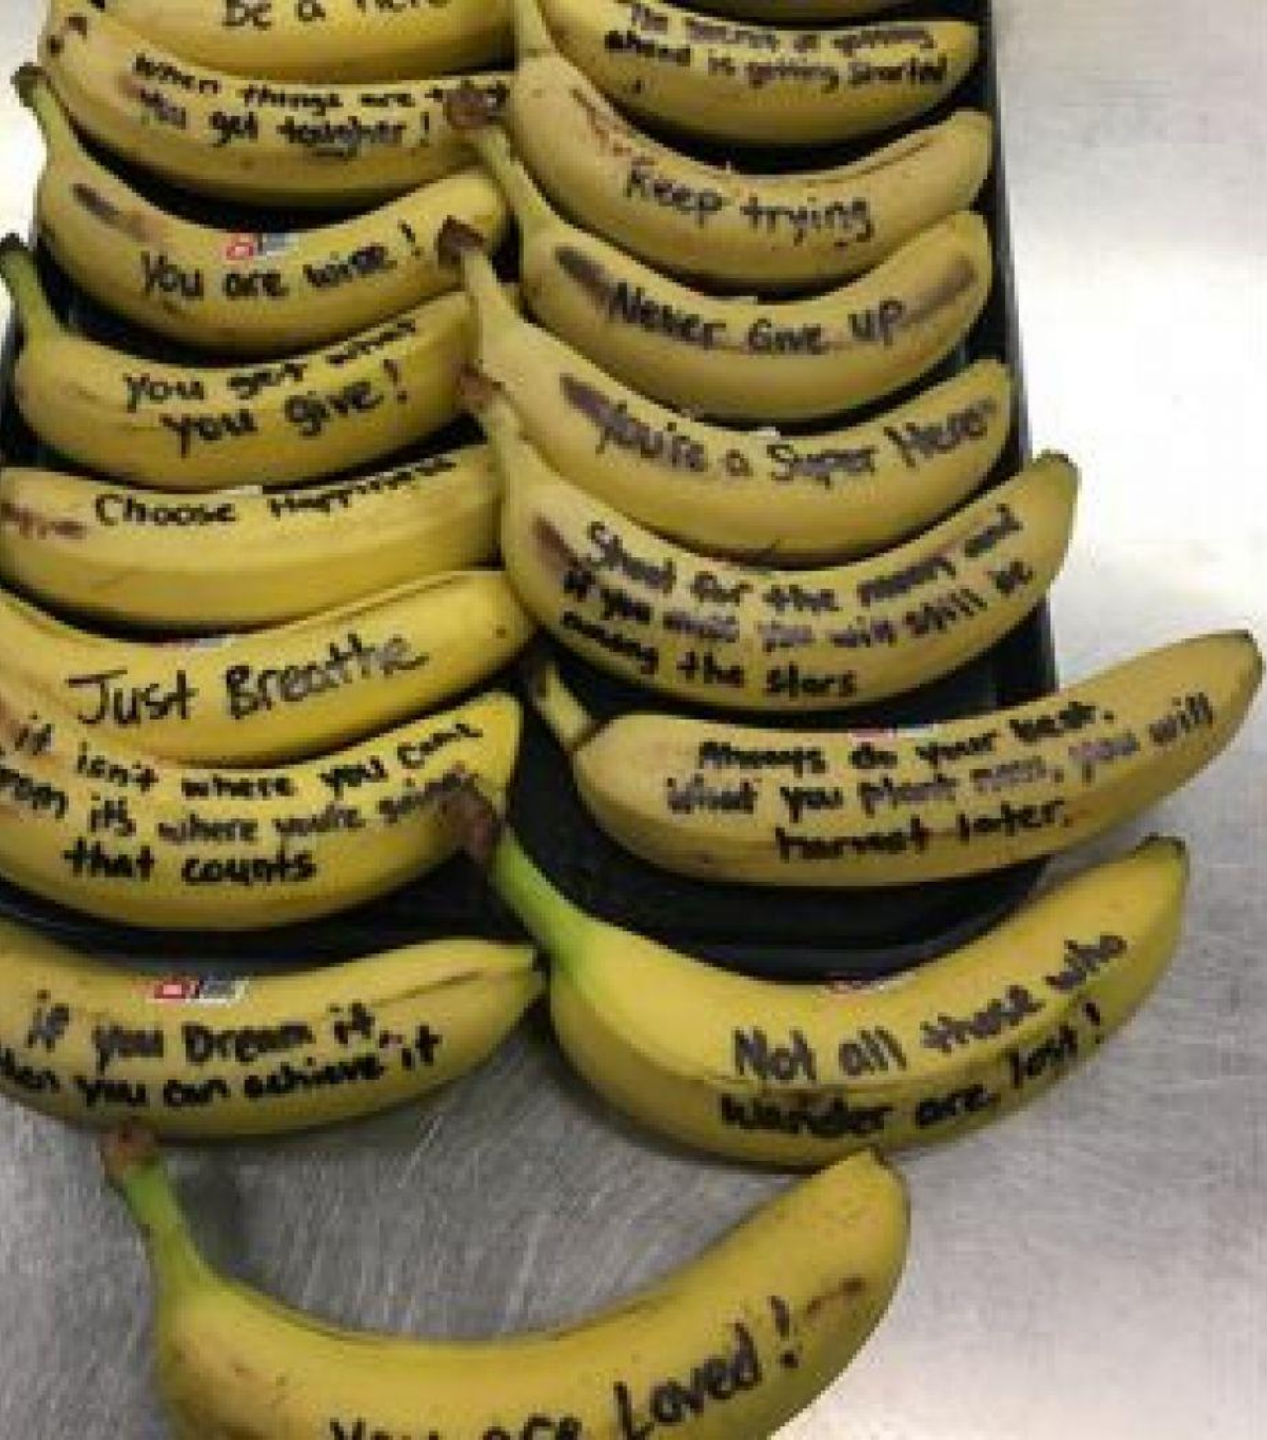 Be a Hero
When things are tough
You get tougher!
You are wise!
you get what
you give!
Choose Happiness
Just Breathe
it isn't where you come
from it's where you're going
that counts
if you Dream it..
then you can achieve it
The secret of getting
ahead is getting Started
Keep trying
Never Give up
You're a Super Hero
Shoot for the moon and
if you miss you will still be
among the stars
Always do your best.
What you plant now, you will
harvest later.
Not all those who
wander are lost!
You are Loved!